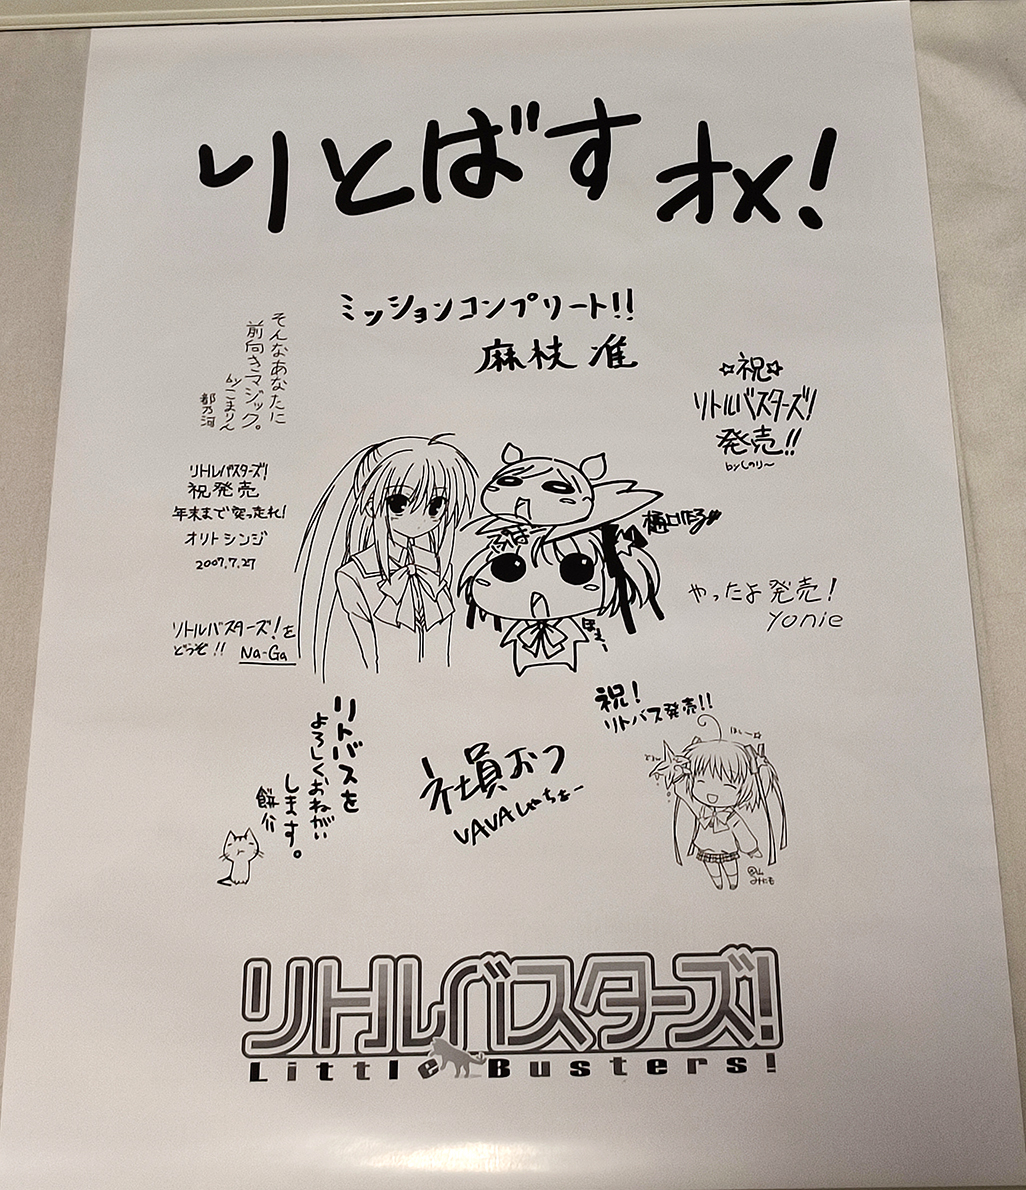 りとばす
オメ!
ミッションコンプリート!!
麻枝 准
そんなあなたに
前向きマジック。
byこまりん
都乃河
☆祝☆
リトルバスターズ!
発売!!
byしのり~
リトルバスターズ!
祝発売
年末まで突っ走れ!
オリト シンジ
2007.7.27
樋上いたる
やったよ発売!
yonie
リトルバスターズ!を
どうぞ!! Na-Ga
祝!
リトバス発売!!
リトバスを
よろしくおねがい
します。
餅介
社員おつ
VAVAしゃちょー
リトルバスターズ!
Little Busters!